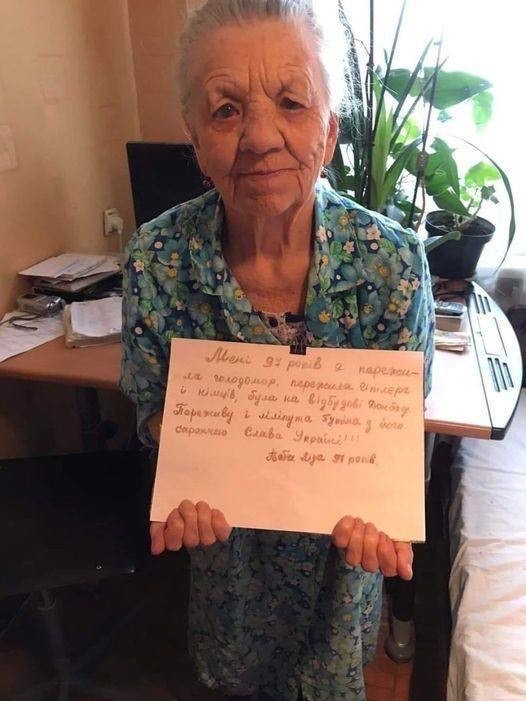 Мені 97 років я пережи-
ла голодомор, пережила Гітлера
і німців, була на відбудові Донбасу.
Переживу і ліліпута Путіна з його
саранчою Слава Україні!!!
Баба Ліза 97 років.